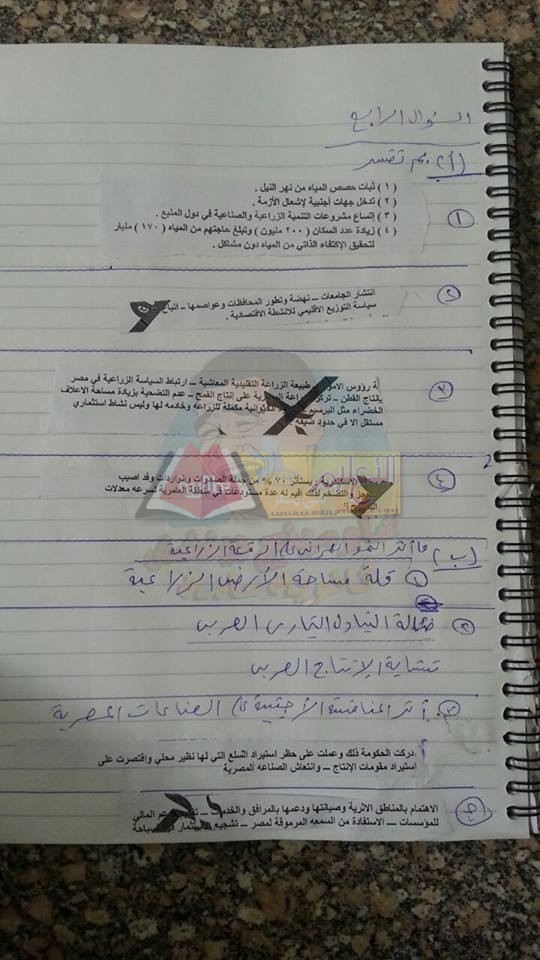 السؤال الرابع
(أ) بم تفسر
①
( ١ ) ثبات حصص المياه من نهر النيل .
( ٢ ) تدخل جهات أجنبية لإشعال الأزمة .
( ٣ ) إتساع مشروعات التنمية الزراعية والصناعية في دول المنبع .
( ٤ ) زيادة عدد السكان ( ٢٠٠ مليون ) وتبلغ حاجتهم من المياه ( ١٧٠ ) مليار
لتحقيق الإكتفاء الذاتي من المياه دون مشاكل .
②
انتشار الجامعات – نهضة وتطور المحافظات وعواصمها – اتباع
سياسة التوزيع الاقليمي للانشطة الاقتصادية .
③
ة رؤوس الاموال طبيعة الزراعة التقليدية المعاشية – ارتباط السياسة الزراعية في مصر
بإنتاج القطن – على إنتاج القمح – عدم التضحية بزيادة مساحة الاعلاف
الخضراء مثل البرسيم مكملة للزراعه وخادمه لها وليس نشاط استثماري
مستقل الا في حدود ضيقه .
④
الاسكندرية . يستأثر ٧٠ % من جملة الصادرات والواردات وقد اصيب
والتضخم لذلك اقيم له عدة مستودعات في منطقة العامرية لسرعه معدلات
(ب) ما أثر النمو العمراني على الرقعة الزراعية
① قلة مساحة الأرض الزراعية
② ضآلة التبادل التجارى العربى
تشابه الإنتاج العربى
③ أثر المنافسة الأجنبية على الصناعات المصرية
دركت الحكومة ذلك وعملت على حظر استيراد السلع التي لها نظير محلي واقتصرت على
استيراد مقومات الإنتاج – وانتعاش الصناعه المصرية
④
الاهتمام بالمناطق الاثرية وصيانتها ودعمها بالمرافق والخدمات المالي
للمؤسسات – الاستفادة من السمعه المرموقة لمصر – تشجيع الاستثمار